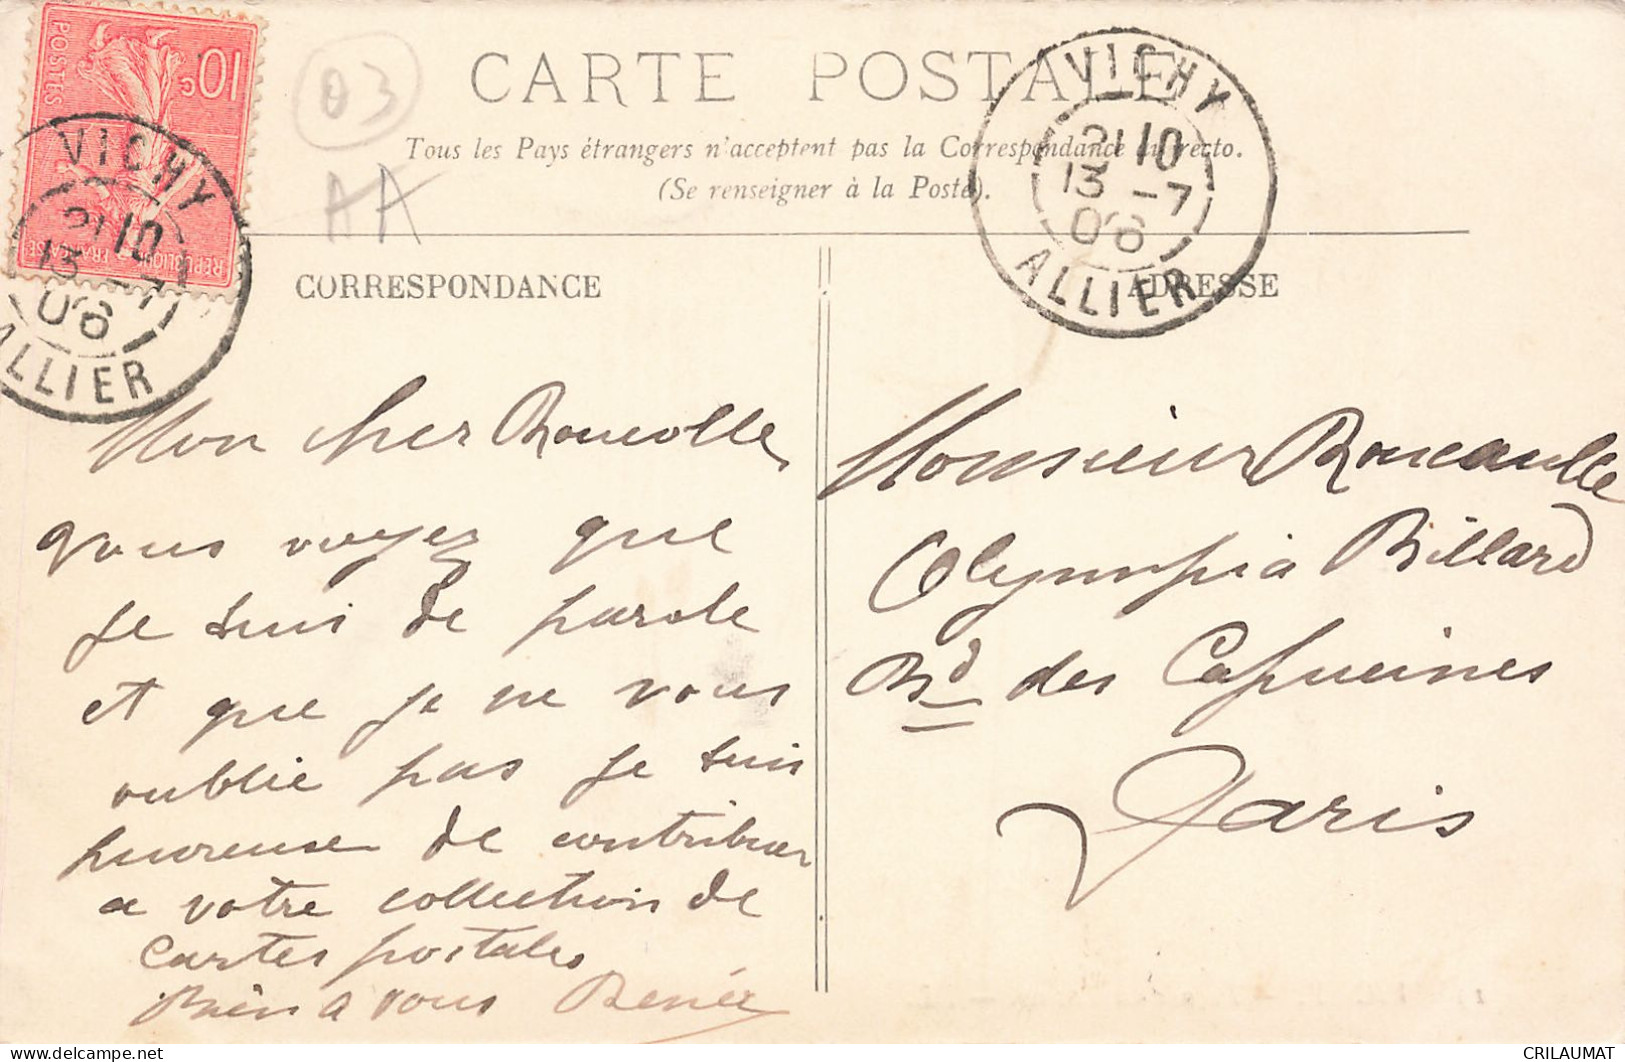 10c
POSTES
REPUBLIQUE FRANÇAISE
VICHY
21 10
13 -7
06
ALLIER
03
AA
CARTE POSTALE
Tous les Pays étrangers n'acceptent pas la Correspondance au recto.
(Se renseigner à la Poste).
VICHY
21 10
13 -7
06
ALLIER
CORRESPONDANCE
Mon cher Roucolle
vous voyez que
je suis de parole
et que je ne vous
oublie pas je suis
heureuse de contribuer
a votre collection de
cartes postales
Bien a vous Renée
ADRESSE
Monsieur Roucaulle
Olympia Billard
Bd des Capucines
Paris
CRILAUMAT